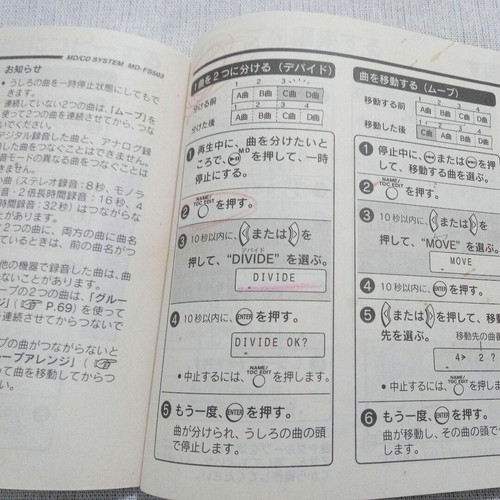 MD/CD SYSTEM MD-FS503
お知らせ
• うしろの曲を一時停止状態にしてもで
きます。
連続していない2つの曲は、「ムーブ」を
使って2つの曲を連続させてから、つな
いでください。
デジタル録音した曲と、アナログ録
した曲をつなぐことはできません。
音モードの異なる曲をつなぐことは
きません。
い曲(ステレオ録音:8秒、モノラ
音・2倍長時間録音:16秒、4
時間録音:32秒)はつながらな
とがあります。
2つの曲に、両方の曲に曲名
ているときは、前の曲名がつ
他の機器で録音した曲は、曲
ないことがあります。
ープの2つの曲は、「グルー
ジ」(☞ P.69)を使って
を連続させてからつないで
プの曲がつながらないと
ープアレンジ」(☞
って曲を移動してからつ
さい。
1曲を2つに分ける(デバイド)
1 2 3
分ける前 A曲 B曲 C曲 D曲
分けた後 A曲 B曲 C曲 D曲
1 2 3 4
❶ 再生中に、曲を分けたいと
ころで、MDを押して、一時
停止にする。
❷ NAME/TOC EDIT を押す。
❸ 10秒以内に、または を
押して、"DIVIDE"を選ぶ。
デバイド
DIVIDE
❹ 10秒以内に、ENTERを押す。
DIVIDE OK?
• 中止するには、NAME/TOC EDIT を押します。
❺ もう一度、ENTERを押す。
曲が分けられ、うしろの曲の頭
で停止します。
曲を移動する(ムーブ)
1 2 3 4
移動する前 A曲 B曲 C曲 D曲
移動した後 C曲 A曲 B曲 D曲
❶ 停止中に、または を押
して、移動する曲を選ぶ。
❷ NAME/TOC EDIT を押す。
❸ 10秒以内に、または を
押して、"MOVE"を選ぶ。
ムーブ
MOVE
❹ 10秒以内に、ENTERを押す。
❺ または を押して、移
先を選ぶ。
移動先の曲番
4▶ 2 ?
• 中止するには、NAME/TOC EDIT を押し
❻ もう一度、ENTERを押す。
曲が移動し、その曲の頭で
します。